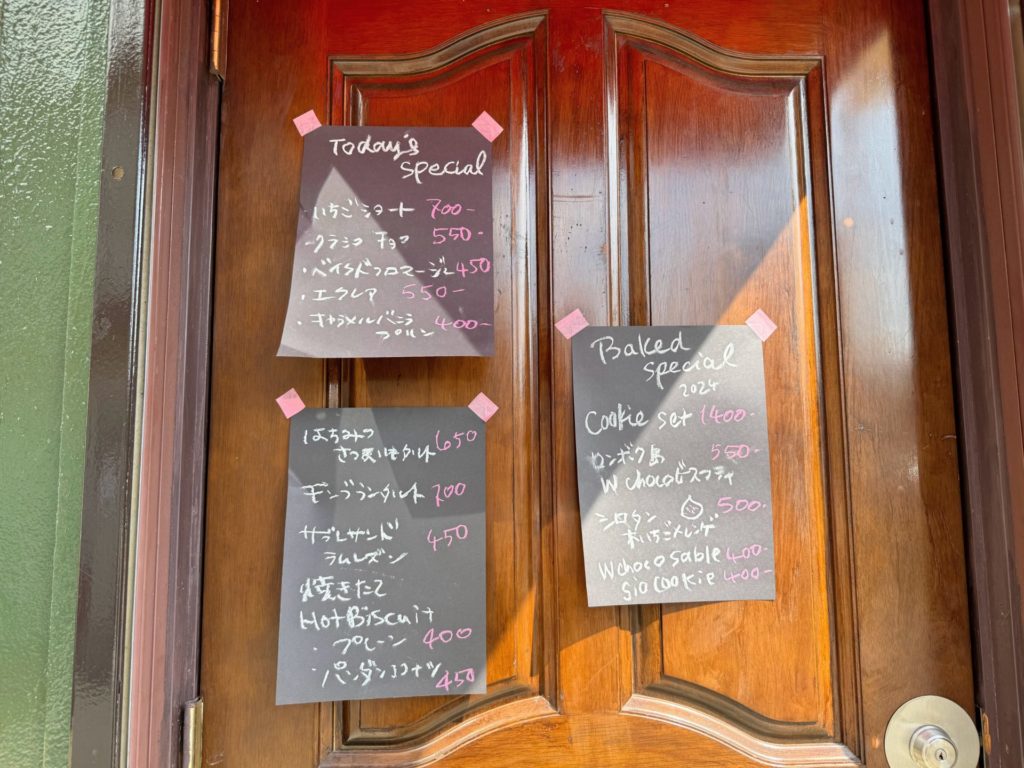 Today's
special
・いちごショート 700-
・クラシックチョコ 550-
・ベイクドフロマージュ 450
・エクレア 550-
・キャラメルバニラ 400-
プリン
はちみつ 650
さつまいもタルト
モンブランタルト 700
サブレサンド 450
ラムレーズン
焼きたて
Hot Biscuit
・プレーン 400
・パンダンココナツ 450
Baked
special
2024
Cookie set 1400-
ロンボク島 550-
W chocoビスコッティ
シロタン 500-
木いちごメレンゲ
W choco sable 400-
Sio cookie 400-